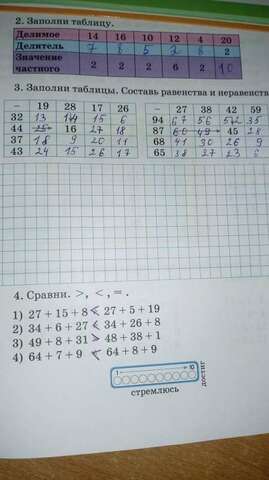 2. Заполни таблицу.
Делимое 14 16 10 12 4 20
Делитель 7 8 5 2 8 2
Значение частного 2 2 2 6 2 10
3. Заполни таблицы. Составь равенства и неравенств
– 19 28 17 26
32 13 14 15 6
44 25 16 27 18
37 18 9 20 11
43 24 15 26 17
– 27 38 42 59
94 67 56 52
87 60 49 45 28
68 41 30 26 9
65 38 27 23 6
4. Сравни. >, <, =.
1) 27 + 15 + 8 < 27 + 5 + 19
2) 34 + 6 + 27 < 34 + 26 + 8
3) 49 + 8 + 31 > 48 + 38 + 1
4) 64 + 7 + 9 < 64 + 8 + 9
стремлюсь
достиг